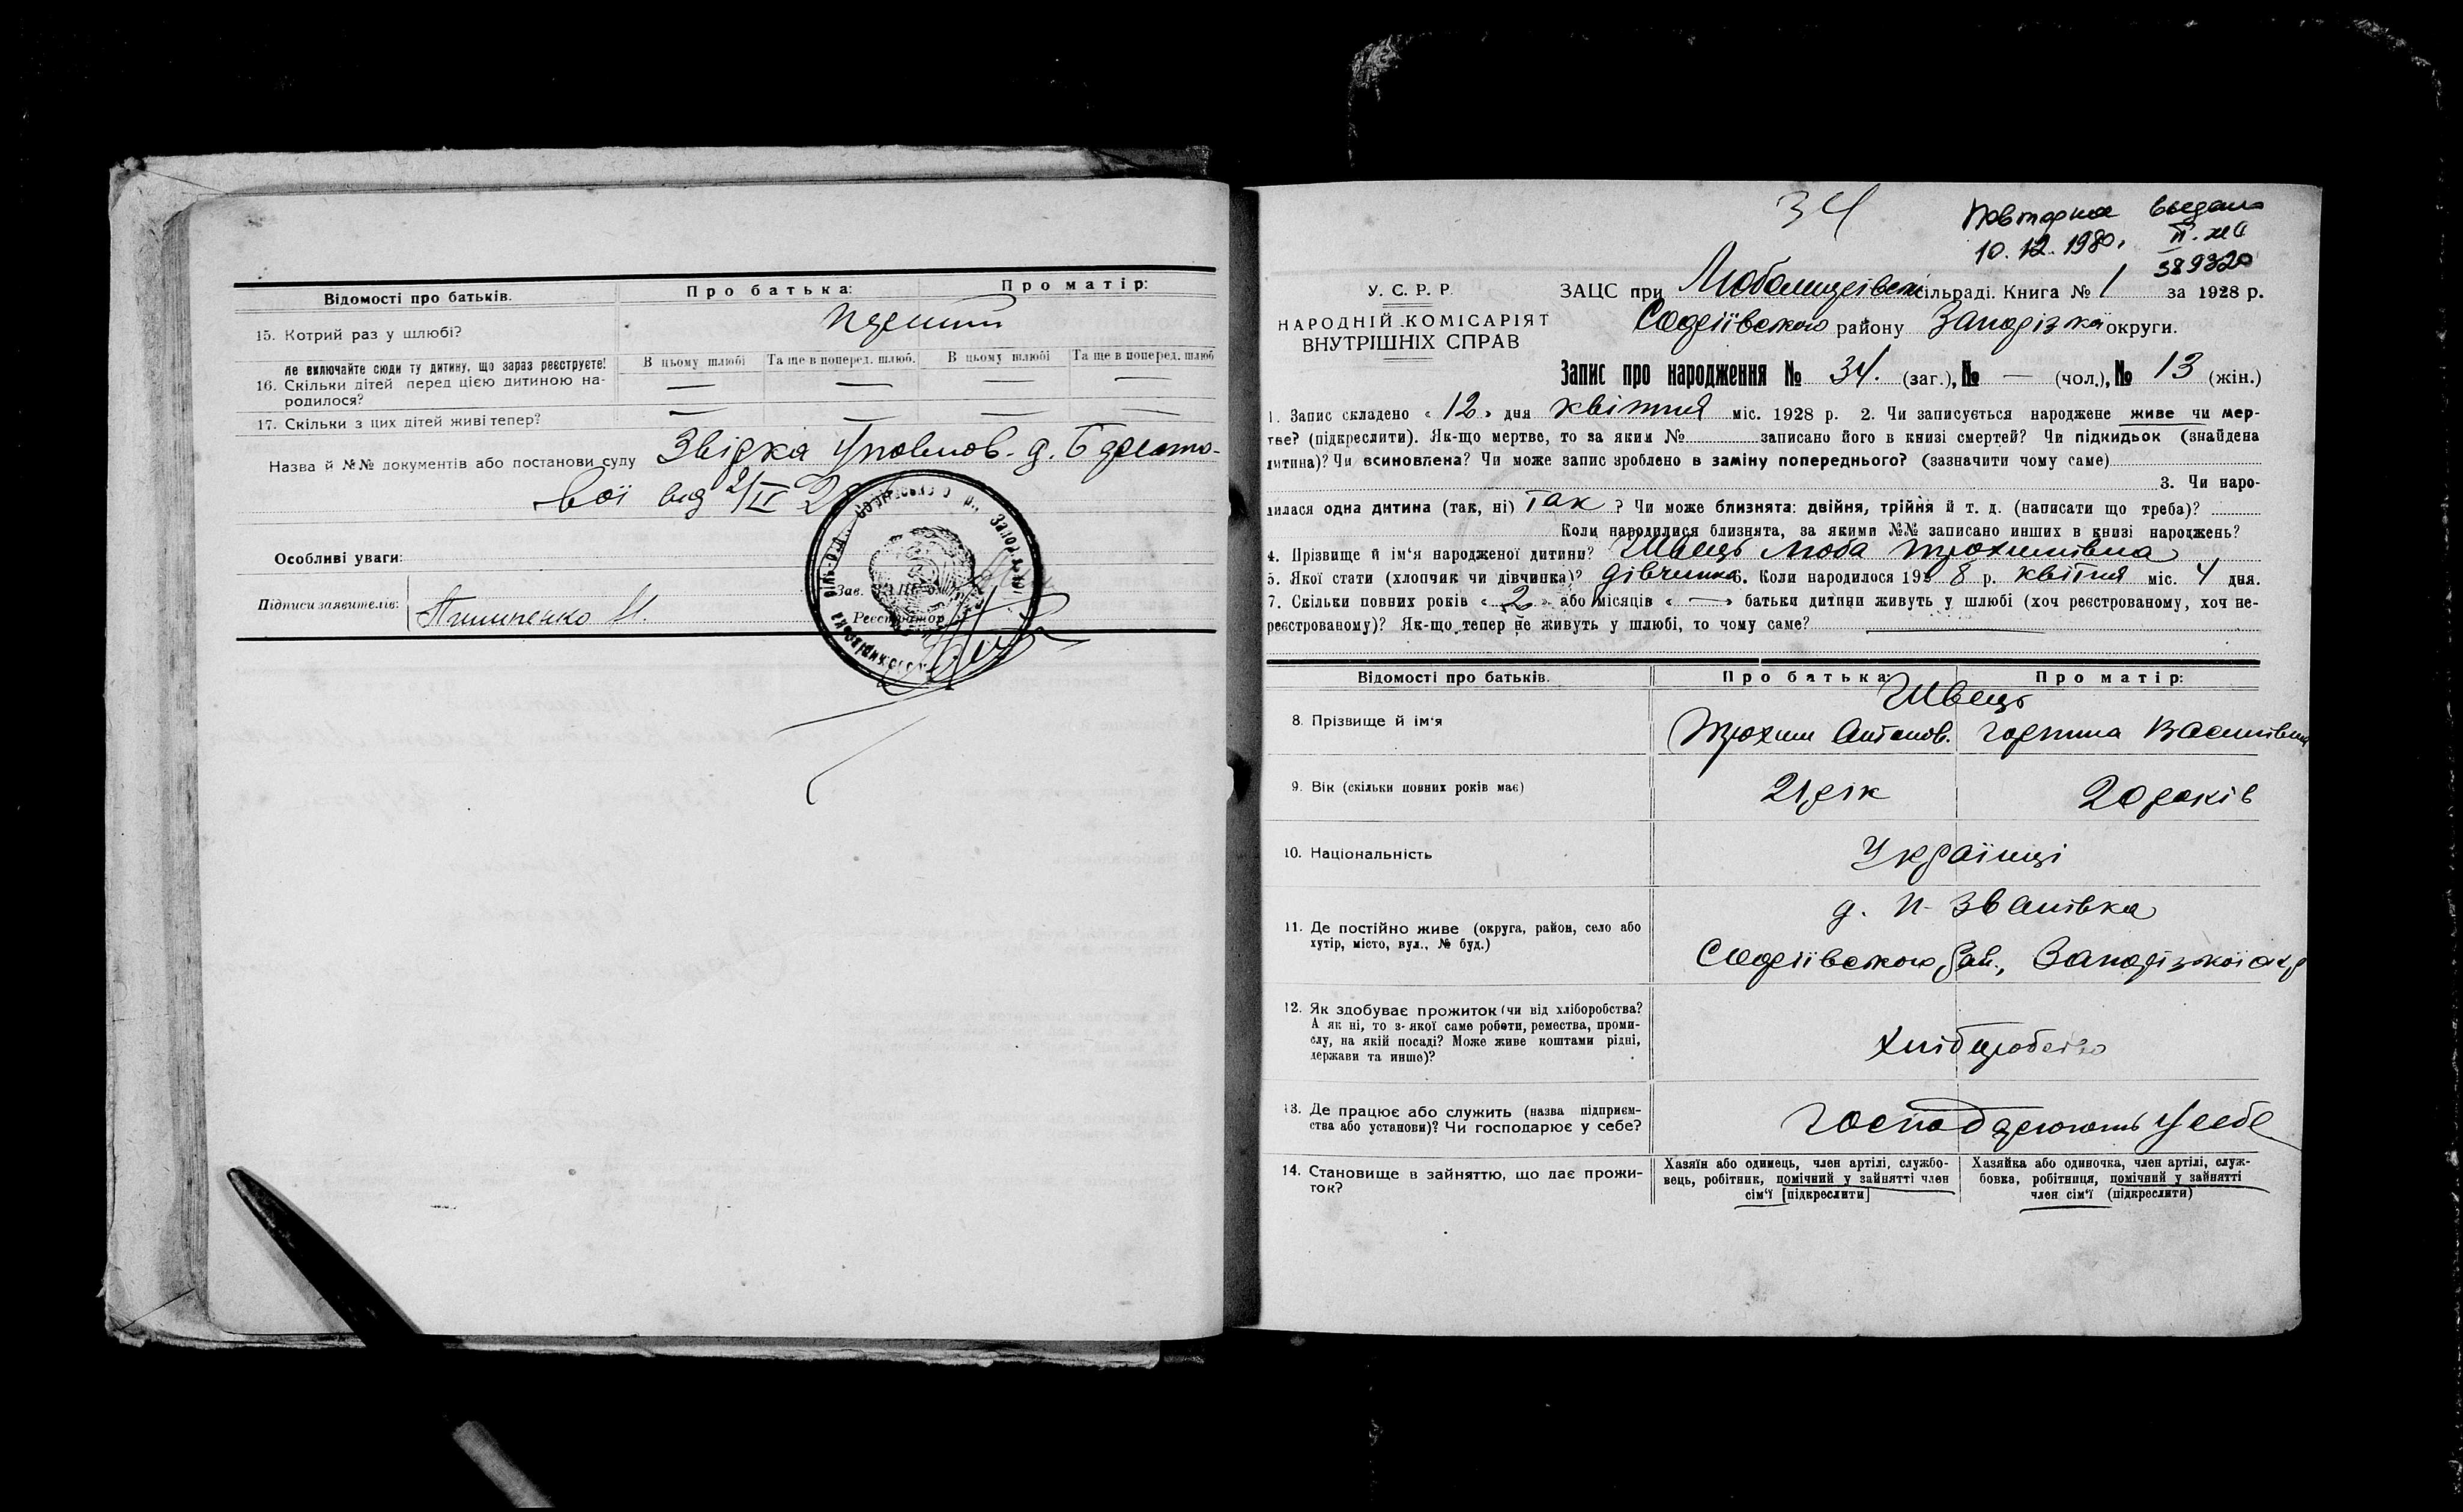 Відомості про батьків.
Про батька:
Про матір:
15. Котрий раз у шлюбі?
Не включайте сюди ту дитину, що зараз реєструєте!
16. Скільки дітей перед цією дитиною на-
родилося?
В цьому шлюбі
Та ще в поперед. шлюб.
В цьому шлюбі
Та ще в поперед. шлюб
— — — —
17. Скільки з цих дітей живі тепер?
— — — —
Назва й №№ документів або постанови суду Звідка
від 2/IV
Особливі уваги:
Підписи заявителів: Пилипенко И.
Зав. ЗАЦС
Реєстратор
34
Повторна выдана
10.12.1980.
389320
У. С. Р. Р.
НАРОДНІЙ КОМІСАРІЯТ
ВНУТРІШНІХ СПРАВ
ЗАЦС при сільраді. Книга № 1 за 1928 р.
Софіївського району Запорізької округи.
Запис про народження № 34. (заг.), № — (чол.), № 13 (жін.)
1. Запис складено « 12 » дня квітня міс. 1928 р. 2. Чи записується народжене живе чи мер-
тве? (підкреслити). Як-що мертве, то за яким № записано його в книзі смертей? Чи підкидьок (знайдена
дитина)? Чи всиновлена? Чи може запис зроблено в заміну попереднього? (зазначити чому саме)
3. Чи наро-
дилася одна дитина (так, ні) Так ? Чи може близнята: двійня, трійня й т. д. (написати що треба)?
Коли народилися близнята, за якими №№ записано инших в книзі народжень?
4. Прізвище й ім'я народженої дитини? Швець Люба Трохимівна
5. Якої стати (хлопчик чи дівчинка)? дівчинка 6. Коли народилося 1928 р. квітня міс. 4 дня.
7. Скільки повних років « 2 » або місяців « — » батьки дитини живуть у шлюбі (хоч реєстрованому, хоч не-
реєстрованому)? Як-що тепер не живуть у шлюбі, то чому саме?
Відомості про батьків.
Про батька:
Про матір:
Швець
8. Прізвище й ім'я
Трохим Антонов.
Горпина Василівна
9. Вік (скільки повних років має)
21 рік
20 років
10. Національність
Українці
11. Де постійно живе (округа, район, село або
хутір, місто, вул., № буд.)
Софіївського рай., Запорізької окр
12. Як здобуває прожиток (чи від хліборобства?
А як ні, то з якої саме роботи, ремества, проми-
слу, на якій посаді? Може живе коштами рідні,
держави та инше)?
хліборобство
13. Де працює або служить (назва підприєм-
ства або установи)? Чи господарює у себе?
господарюють у себе
14. Становище в зайняттю, що дає прожи-
ток?
Хазяїн або одинець, член артілі, службо-
вець, робітник, помічний у зайнятті член
сім'ї [підкреслити]
Хазяйка або одиночка, член артілі, служ-
бовка, робітниця, помічний у зайнятті
член сім'ї (підкреслити)